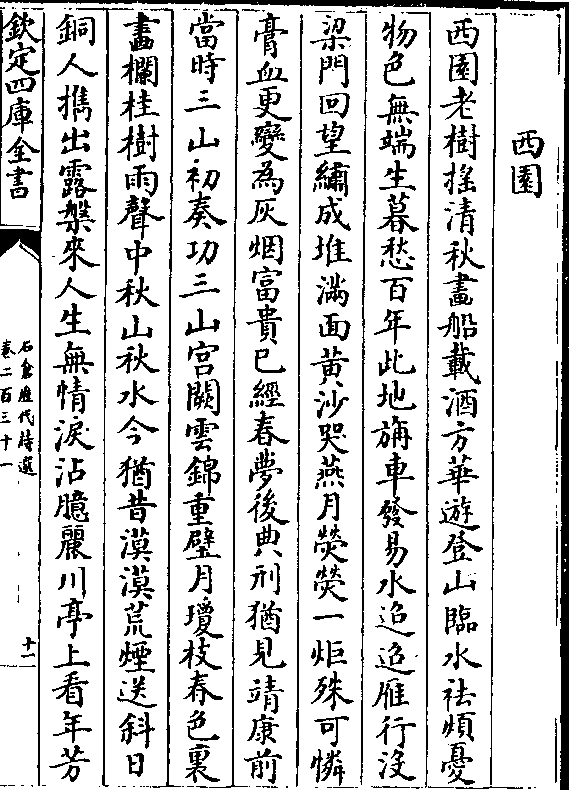 西園
西園老樹揺清秋畫船載酒方華遊登山臨水祛煩憂
物色無端生暮愁百年此地旃車發易水迢迢雁行没
梁門回望繡成堆滿面黄沙哭燕月熒熒一炬殊可憐
膏血更變為灰烟富貴已經春夢後典刑猶見靖康前
當時三山初奏功三山宫闕雲錦重璧月瓊枝春色裏
畫欄桂樹雨聲中秋山秋水今猶昔漠漠荒煙送斜日
銅人擕出露槃來人生無情淚沾臆麗川亭上看年芳
欽定四庫全書
石倉歷代詩選
卷二百三十一
十一